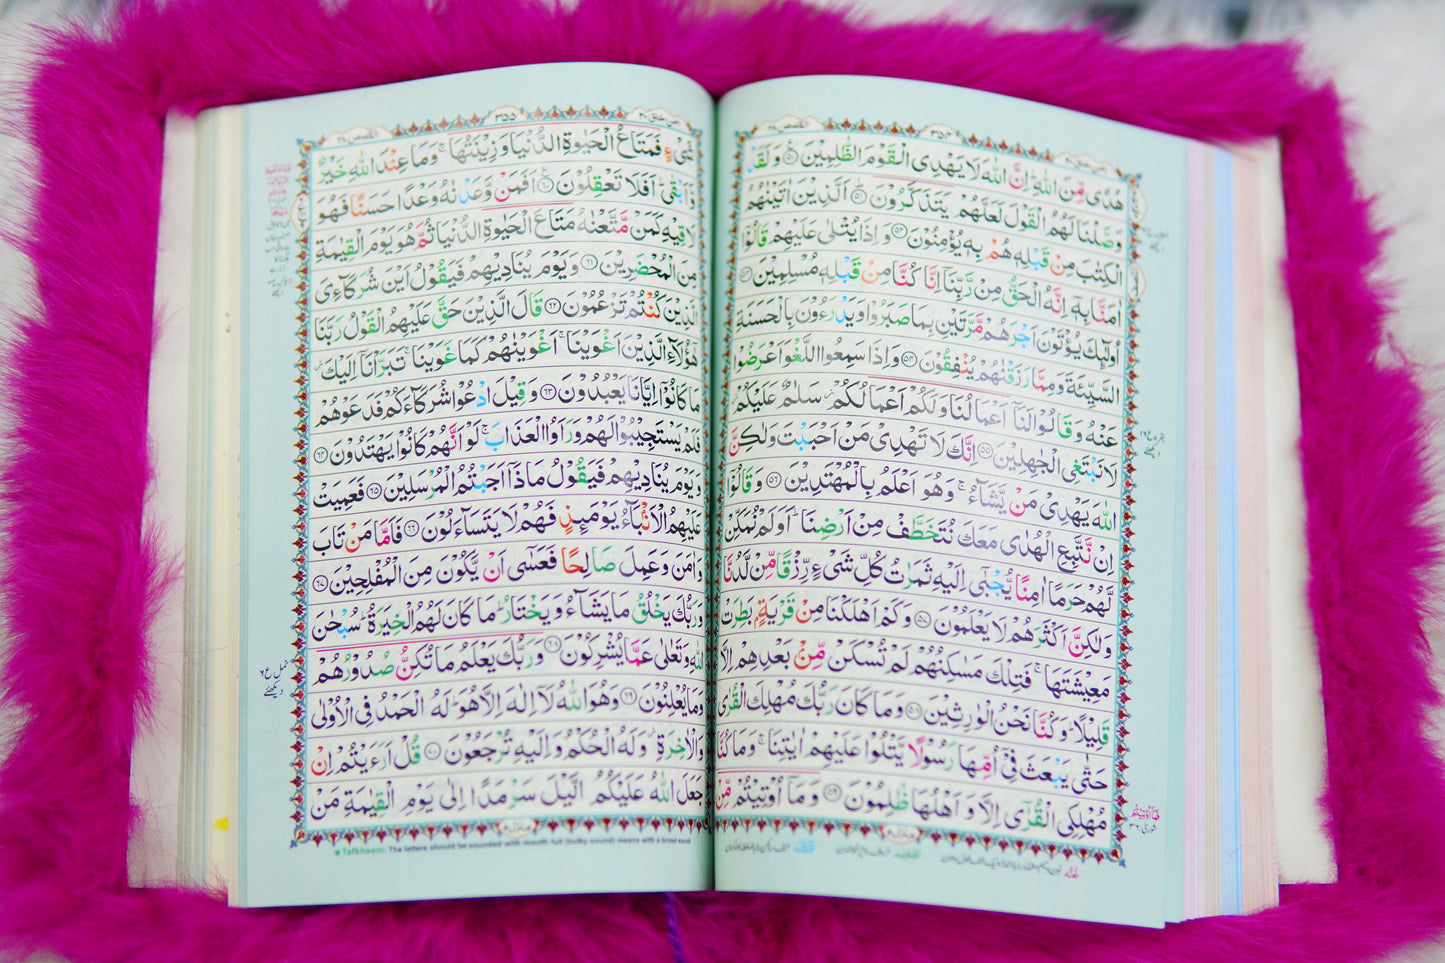 القصص ٢٨
٣٥٤
هُدًى مِّنَ اللّٰهِ ؕ اِنَّ اللّٰهَ لَا يَهْدِى الْقَوْمَ الظّٰلِمِيْنَ ﴿۵۰﴾ وَلَقَدْ
وَصَّلْنَا لَهُمُ الْقَوْلَ لَعَلَّهُمْ يَتَذَكَّرُوْنَ ﴿۵۱﴾ اَلَّذِيْنَ اٰتَيْنٰهُمُ
الْكِتٰبَ مِنْ قَبْلِهٖ هُمْ بِهٖ يُؤْمِنُوْنَ ﴿۵۲﴾ وَاِذَا يُتْلٰى عَلَيْهِمْ قَالُوْۤا
اٰمَنَّا بِهٖۤ اِنَّهُ الْحَقُّ مِنْ رَّبِّنَاۤ اِنَّا كُنَّا مِنْ قَبْلِهٖ مُسْلِمِيْنَ ﴿۵۳﴾
اُولٰٓئِكَ يُؤْتَوْنَ اَجْرَهُمْ مَّرَّتَيْنِ بِمَا صَبَرُوْا وَيَدْرَءُوْنَ بِالْحَسَنَةِ
السَّيِّئَةَ وَمِمَّا رَزَقْنٰهُمْ يُنْفِقُوْنَ ﴿۵۴﴾ وَاِذَا سَمِعُوا اللَّغْوَ اَعْرَضُوْا
عَنْهُ وَقَالُوْا لَنَاۤ اَعْمَالُنَا وَلَكُمْ اَعْمَالُكُمْ ؗ سَلٰمٌ عَلَيْكُمْ ؗ
لَا نَبْتَغِى الْجٰهِلِيْنَ ﴿۵۵﴾ اِنَّكَ لَا تَهْدِىْ مَنْ اَحْبَبْتَ وَلٰكِنَّ
اللّٰهَ يَهْدِىْ مَنْ يَّشَآءُ ۚ وَهُوَ اَعْلَمُ بِالْمُهْتَدِيْنَ ﴿۵۶﴾ وَقَالُوْۤا
اِنْ نَّتَّبِعِ الْهُدٰى مَعَكَ نُتَخَطَّفْ مِنْ اَرْضِنَا ؕ اَوَلَمْ نُمَكِّنْ
لَّهُمْ حَرَمًا اٰمِنًا يُّجْبٰٓى اِلَيْهِ ثَمَرٰتُ كُلِّ شَىْءٍ رِّزْقًا مِّنْ لَّدُنَّا
وَلٰكِنَّ اَكْثَرَهُمْ لَا يَعْلَمُوْنَ ﴿۵۷﴾ وَكَمْ اَهْلَكْنَا مِنْ قَرْيَةٍۭ بَطِرَتْ
مَعِيْشَتَهَا ۚ فَتِلْكَ مَسٰكِنُهُمْ لَمْ تُسْكَنْ مِّنْۢ بَعْدِهِمْ اِلَّا
قَلِيْلًا ؕ وَكُنَّا نَحْنُ الْوٰرِثِيْنَ ﴿۵۸﴾ وَمَا كَانَ رَبُّكَ مُهْلِكَ الْقُرٰى
حَتّٰى يَبْعَثَ فِىْۤ اُمِّهَا رَسُوْلًا يَّتْلُوْا عَلَيْهِمْ اٰيٰتِنَا ۚ وَمَا كُنَّا
مُهْلِكِى الْقُرٰٓى اِلَّا وَاَهْلُهَا ظٰلِمُوْنَ ﴿۵۹﴾ وَمَاۤ اُوْتِيْتُمْ مِّنْ
القصص ٢٨
٣٥٥
شَىْءٍ فَمَتَاعُ الْحَيٰوةِ الدُّنْيَا وَزِيْنَتُهَا ۚ وَمَا عِنْدَ اللّٰهِ خَيْرٌ
وَّاَبْقٰى ؕ اَفَلَا تَعْقِلُوْنَ ﴿۶۰﴾ اَفَمَنْ وَّعَدْنٰهُ وَعْدًا حَسَنًا فَهُوَ
لَاقِيْهِ كَمَنْ مَّتَّعْنٰهُ مَتَاعَ الْحَيٰوةِ الدُّنْيَا ثُمَّ هُوَ يَوْمَ الْقِيٰمَةِ
مِنَ الْمُحْضَرِيْنَ ﴿۶۱﴾ وَيَوْمَ يُنَادِيْهِمْ فَيَقُوْلُ اَيْنَ شُرَكَآءِىَ
الَّذِيْنَ كُنْتُمْ تَزْعُمُوْنَ ﴿۶۲﴾ قَالَ الَّذِيْنَ حَقَّ عَلَيْهِمُ الْقَوْلُ رَبَّنَا
هٰٓؤُلَآءِ الَّذِيْنَ اَغْوَيْنَا ۚ اَغْوَيْنٰهُمْ كَمَا غَوَيْنَا ۚ تَبَرَّاْنَاۤ اِلَيْكَ ؗ
مَا كَانُوْۤا اِيَّانَا يَعْبُدُوْنَ ﴿۶۳﴾ وَقِيْلَ ادْعُوْا شُرَكَآءَكُمْ فَدَعَوْهُمْ
فَلَمْ يَسْتَجِيْبُوْا لَهُمْ وَرَاَوُا الْعَذَابَ ۚ لَوْ اَنَّهُمْ كَانُوْا يَهْتَدُوْنَ ﴿۶۴﴾
وَيَوْمَ يُنَادِيْهِمْ فَيَقُوْلُ مَاذَاۤ اَجَبْتُمُ الْمُرْسَلِيْنَ ﴿۶۵﴾ فَعَمِيَتْ
عَلَيْهِمُ الْاَنْۢبَآءُ يَوْمَئِذٍ فَهُمْ لَا يَتَسَآءَلُوْنَ ﴿۶۶﴾ فَاَمَّا مَنْ تَابَ
وَاٰمَنَ وَعَمِلَ صَالِحًا فَعَسٰٓى اَنْ يَّكُوْنَ مِنَ الْمُفْلِحِيْنَ ﴿۶۷﴾
وَرَبُّكَ يَخْلُقُ مَا يَشَآءُ وَيَخْتَارُ ؕ مَا كَانَ لَهُمُ الْخِيَرَةُ ؕ سُبْحٰنَ
اللّٰهِ وَتَعٰلٰى عَمَّا يُشْرِكُوْنَ ﴿۶۸﴾ وَرَبُّكَ يَعْلَمُ مَا تُكِنُّ صُدُوْرُهُمْ
وَمَا يُعْلِنُوْنَ ﴿۶۹﴾ وَهُوَ اللّٰهُ لَاۤ اِلٰهَ اِلَّا هُوَ ؕ لَهُ الْحَمْدُ فِى الْاُوْلٰى
وَالْاٰخِرَةِ ؗ وَلَهُ الْحُكْمُ وَاِلَيْهِ تُرْجَعُوْنَ ﴿۷۰﴾ قُلْ اَرَءَيْتُمْ اِنْ
جَعَلَ اللّٰهُ عَلَيْكُمُ الَّيْلَ سَرْمَدًا اِلٰى يَوْمِ الْقِيٰمَةِ مَنْ
Tafkheem: The letters should be sounded with mouth full (bulky sound) means with a broad sound